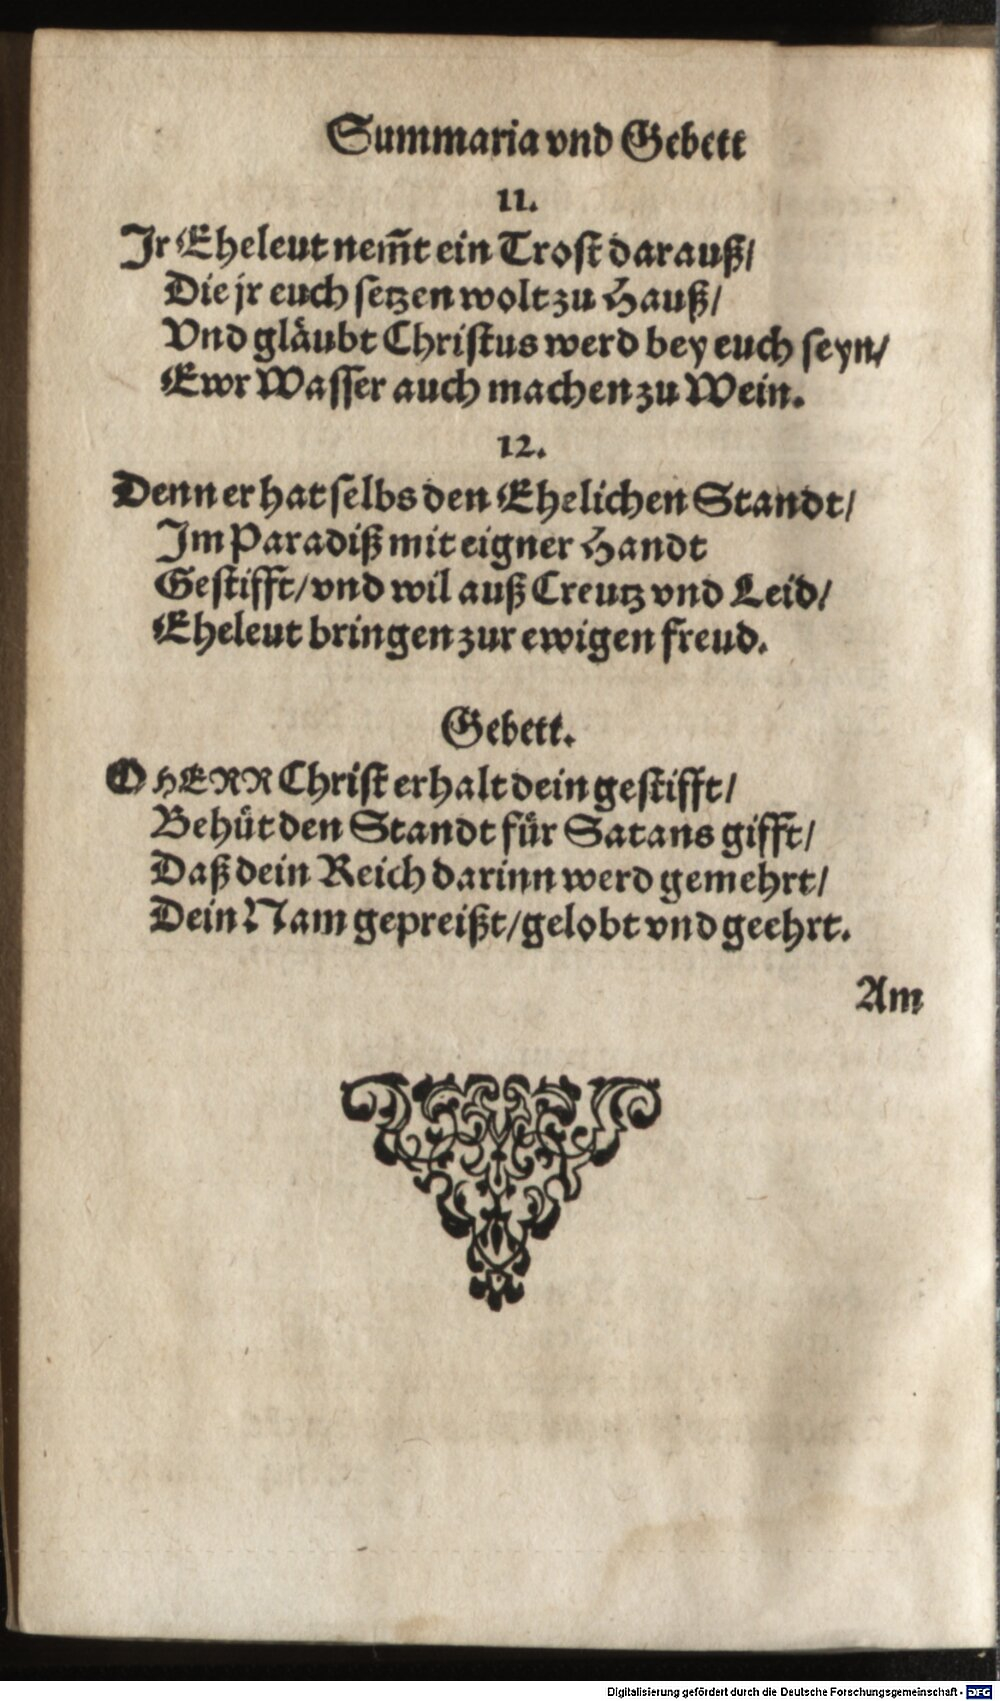 Summaria vnd Gebett
11.
Jr Eheleut nem̃t ein Trost darauß/
Die jr euch setzen wolt zu Hauß/
Vnd gläubt Christus werd bey euch seyn/
Ewr Wasser auch machen zu Wein.
12.
Denn er hat selbs den Ehelichen Standt/
Im Paradiß mit eigner Handt
Gestifft/ vnd wil auß Creutz vnd Leid/
Eheleut bringen zur ewigen freud.
Gebett.
O HERR Christ erhalt dein gestifft/
Behüt den Standt für Satans gifft/
Daß dein Reich darinn werd gemehrt/
Dein Nam gepreißt/ gelobt vnd geehrt.
Am
Digitalisierung gefördert durch die Deutsche Forschungsgemeinschaft - DFG